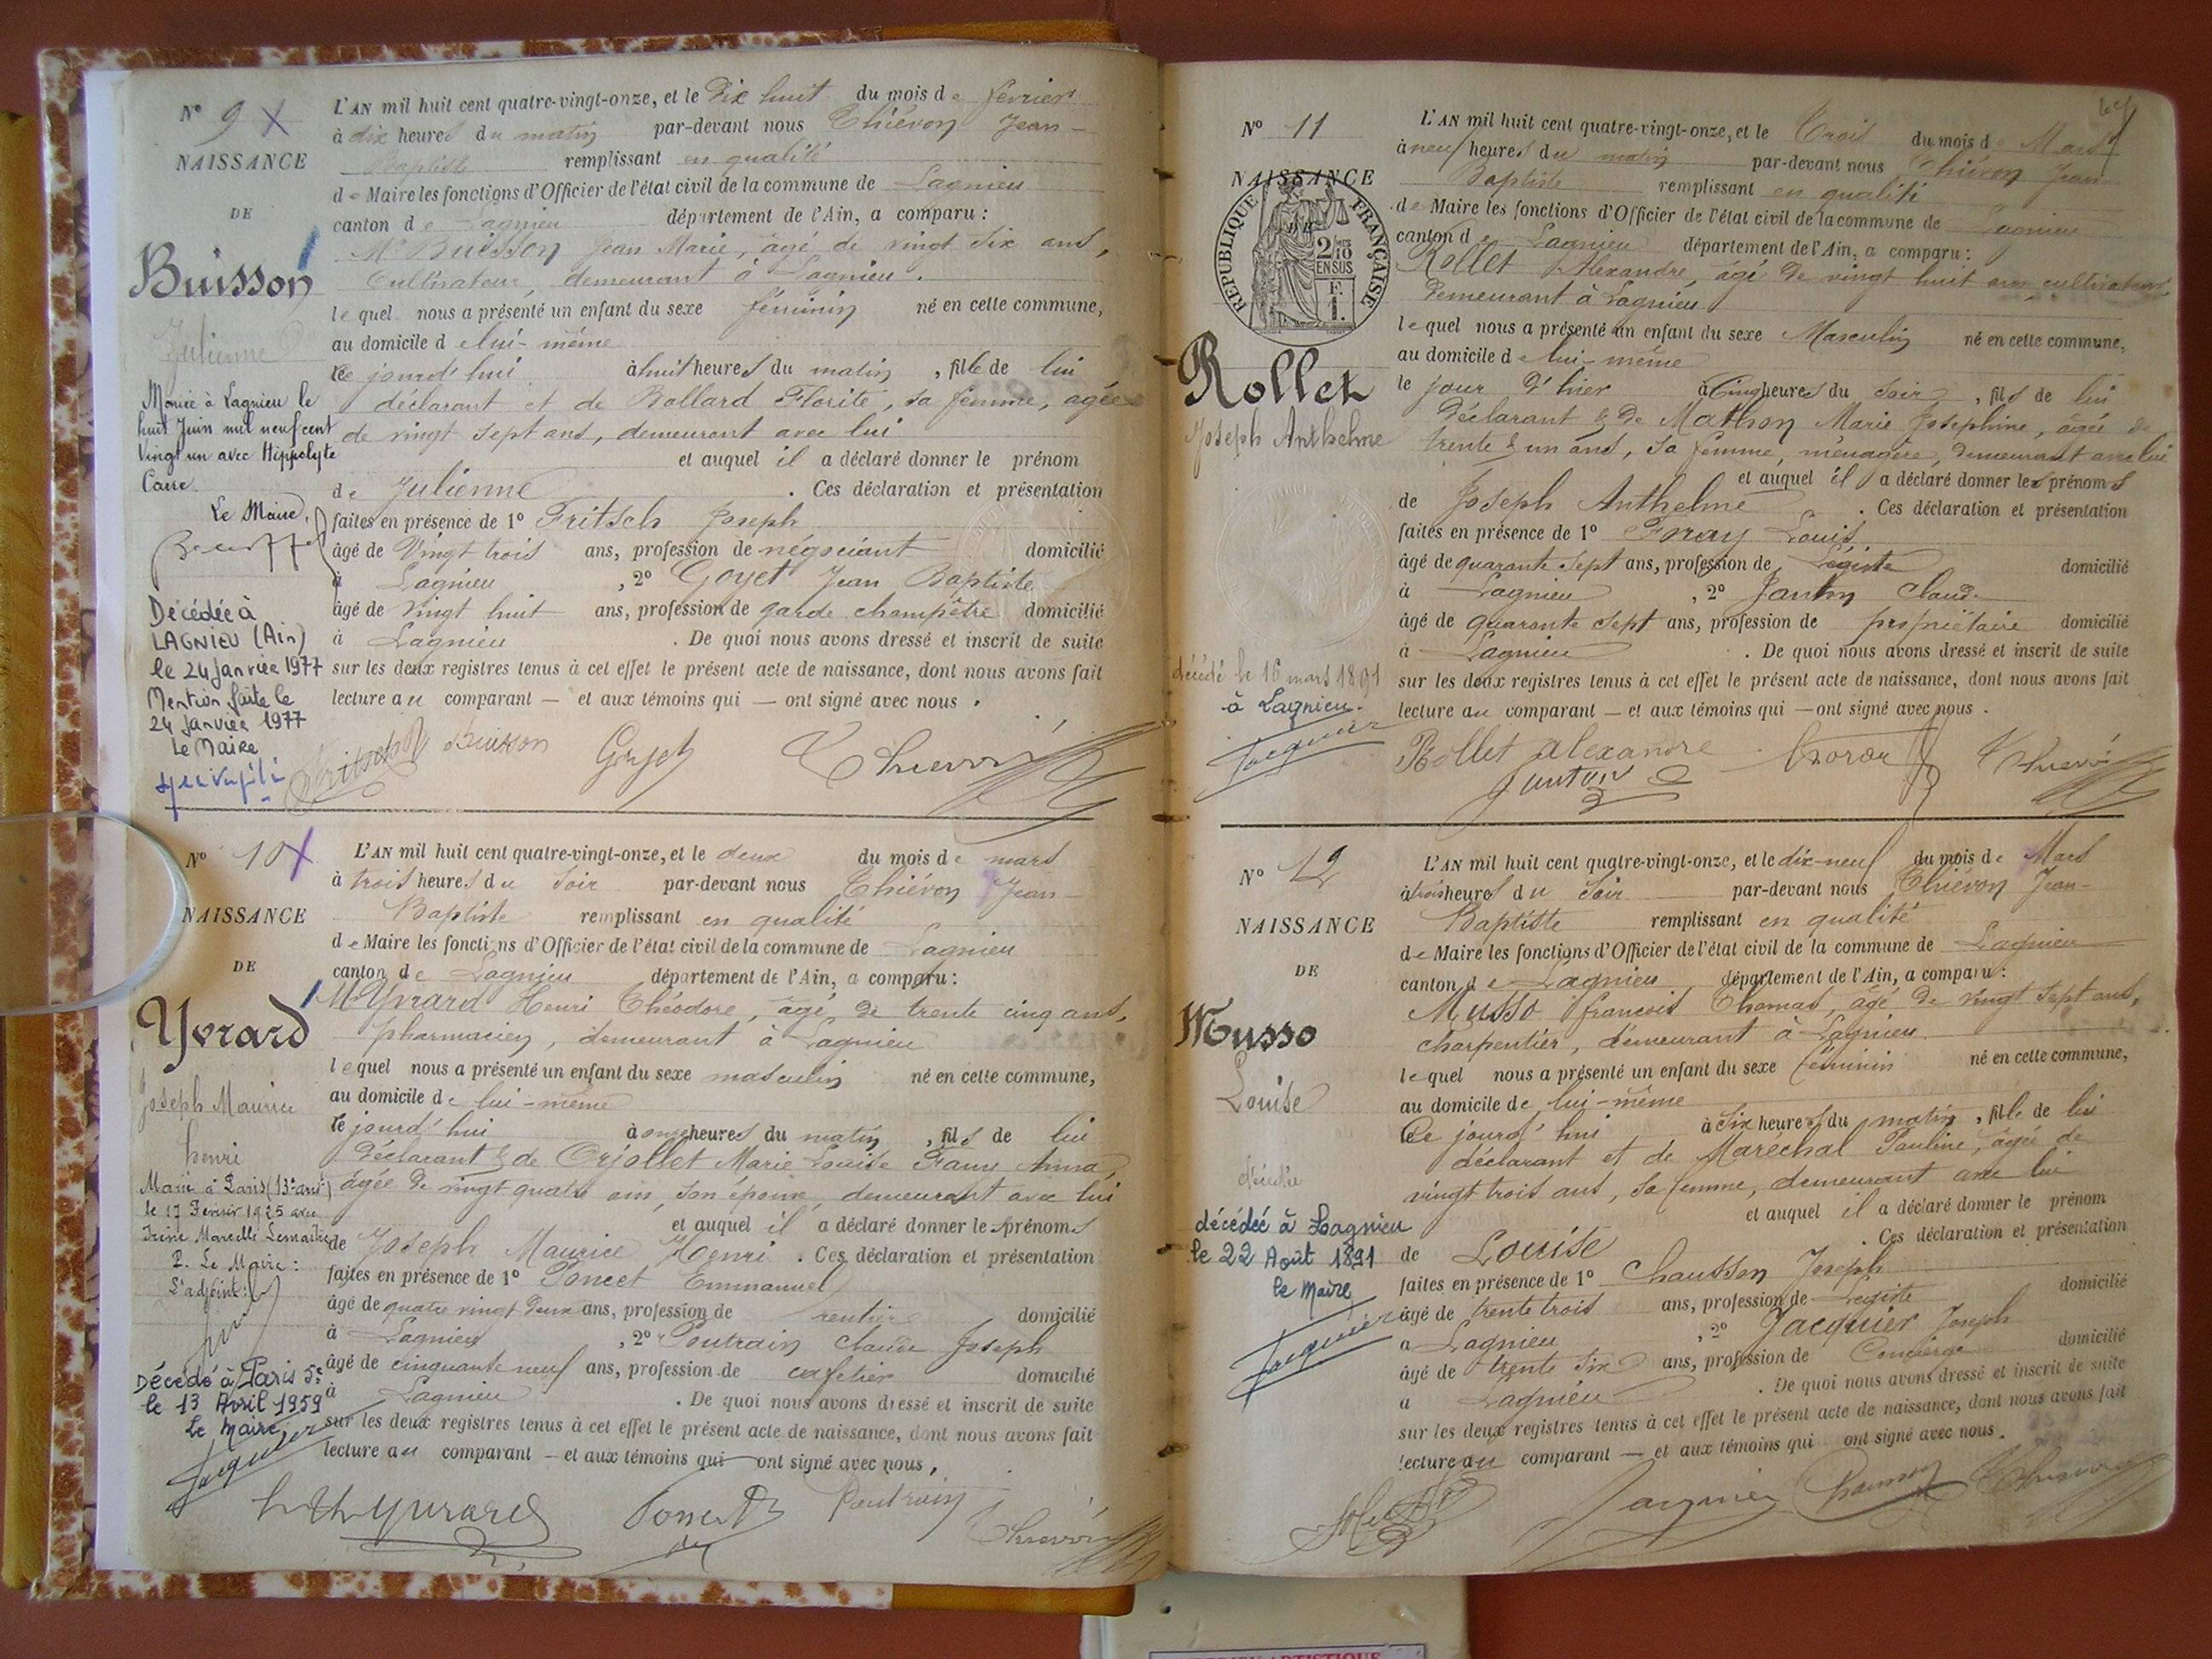 N° 9 X
NAISSANCE
DE
Buisson
Julienne
Mariée à Lagnieu le
huit Juin mil neuf cent
Vingt un avec Hippolyte
Le Maire,
Décédée à
LAGNIEU (Ain)
le 24 Janvier 1977
Mention faite le
24 Janvier 1977
Le Maire
L'AN mil huit cent quatre-vingt-onze, et le Dix huit du mois de février
à dix heures du matin par-devant nous Thiévon Jean-
Baptiste remplissant en qualité
de Maire les fonctions d'Officier de l'état civil de la commune de Lagnieu
canton de Lagnieu département de l'Ain, a comparu :
Mr Buisson Jean Marie, âgé de vingt six ans,
Cultivateur, demeurant à Lagnieu.
lequel nous a présenté un enfant du sexe féminin né en cette commune,
au domicile de lui-même
ce jourd'hui à huit heures du matin, fille de lui
déclarant et de Ballard Florite, sa femme, agée
de vingt sept ans, demeurant avec lui
et auquel il a déclaré donner le prénom
de Julienne . Ces déclaration et présentation
faites en présence de 1° Fritsch Joseph
âgé de Vingt trois ans, profession de négociant domicilié
à Lagnieu , 2° Goyet Jean Baptiste
âgé de vingt huit ans, profession de garde champêtre domicilié
à Lagnieu . De quoi nous avons dressé et inscrit de suite
sur les deux registres tenus à cet effet le présent acte de naissance, dont nous avons fait
lecture au comparant — et aux témoins qui — ont signé avec nous .
Fritsch Buisson Goyet Thievon
N° 10 X
NAISSANCE
DE
Yvrard
Joseph Maurice
henri
Marié à Paris (13e arrt)
le 17 Février 1925 avec
Irène Marcelle Lemaitre
P. Le Maire :
L'adjoint :
Décédé à Paris 5e
le 13 Avril 1959
Le Maire,
Jacquier
L'AN mil huit cent quatre-vingt-onze, et le deux du mois de mars
à trois heures du soir par-devant nous Thiévon Jean-
Baptiste remplissant en qualité
de Maire les fonctions d'Officier de l'état civil de la commune de Lagnieu
canton de Lagnieu département de l'Ain, a comparu :
Mr Yvrard Henri Théodore, âgé de trente cinq ans,
pharmacien, demeurant à Lagnieu
lequel nous a présenté un enfant du sexe masculin né en cette commune,
au domicile de lui-même
ce jourd'hui à onze heures du matin, fils de lui
déclarant & de Orjollet Marie Louise Fany Anna,
âgée de vingt quatre ans, son épouse demeurant avec lui
et auquel il a déclaré donner les prénoms
de Joseph Maurice Henri . Ces déclaration et présentation
faites en présence de 1° Poncet Emmanuel
âgé de quatre vingt deux ans, profession de rentier domicilié
à Lagnieu , 2° Poutrain Claude Joseph
âgé de cinquante neuf ans, profession de cafetier domicilié
à Lagnieu . De quoi nous avons dressé et inscrit de suite
sur les deux registres tenus à cet effet le présent acte de naissance, dont nous avons fait
lecture au comparant — et aux témoins qui — ont signé avec nous,
Yvrard Poncet Poutrain Thievon
N° 11
NAISSANCE
DE
RÉPUBLIQUE FRANÇAISE
2/10 EN SUS
F. 1.
Rollet
Joseph Anthelme
décédé le 16 mars 1891
à Lagnieu.
Jacquier
L'AN mil huit cent quatre-vingt-onze, et le Trois du mois de Mars
à neuf heures du matin par-devant nous Thiévon Jean-
Baptiste remplissant en qualité
de Maire les fonctions d'Officier de l'état civil de la commune de Lagnieu
canton de Lagnieu département de l'Ain, a comparu :
Rollet Alexandre, âgé de vingt huit ans cultivateur,
demeurant à Lagnieu
lequel nous a présenté un enfant du sexe Masculin né en cette commune,
au domicile de lui-même
le jour d'hier à Cinq heures du soir, fils de lui
déclarant & de Mathon Marie Josephine, âgée de
trente & un ans, sa femme, ménagère, demeurant avec lui
et auquel il a déclaré donner les prénoms
de Joseph Anthelme . Ces déclaration et présentation
faites en présence de 1° Foray Louis
âgé de quarante sept ans, profession de Légiste domicilié
à Lagnieu , 2° Jantin Claude
âgé de quarante sept ans, profession de propriétaire domicilié
à Lagnieu . De quoi nous avons dressé et inscrit de suite
sur les deux registres tenus à cet effet le présent acte de naissance, dont nous avons fait
lecture au comparant — et aux témoins qui — ont signé avec nous .
Rollet alexandre Foray Thievon
Jantin
N° 12
NAISSANCE
DE
Musso
Louise
décédée
décédée à Lagnieu
le 22 Août 1891
le Maire
Jacquier
L'AN mil huit cent quatre-vingt-onze, et le dix-neuf du mois de Mars
à trois heures du soir par-devant nous Thiévon Jean-
Baptiste remplissant en qualité
de Maire les fonctions d'Officier de l'état civil de la commune de Lagnieu
canton de Lagnieu département de l'Ain, a comparu :
Musso francois Thomas, agé de vingt sept ans,
charpentier, demeurant à Lagnieu
lequel nous a présenté un enfant du sexe féminin né en cette commune,
au domicile de lui-même
Ce jourd'hui à six heures du matin, fille de lui
déclarant et de Maréchal Pauline, âgée de
vingt trois ans, sa femme, demeurant avec lui
et auquel il a déclaré donner le prénom
de Louise . Ces déclaration et présentation
faites en présence de 1° Chausson Joseph
âgé de trente trois ans, profession de Légiste domicilié
à Lagnieu , 2° Jacquier Joseph
âgé de trente six ans, profession de Concierge domicilié
à Lagnieu . De quoi nous avons dressé et inscrit de suite
sur les deux registres tenus à cet effet le présent acte de naissance, dont nous avons fait
lecture au comparant — et aux témoins qui ont signé avec nous .
Jacquier Chausson Thievon